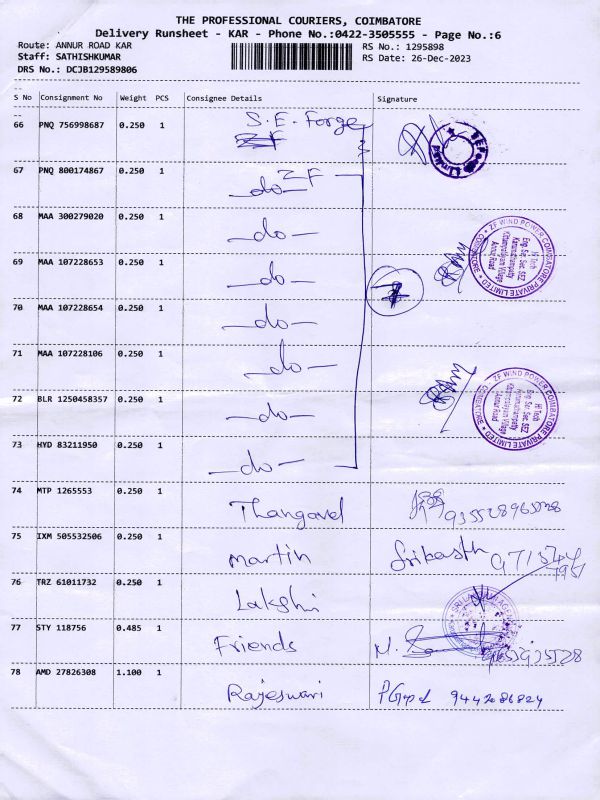 THE PROFESSIONAL COURIERS, COIMBATORE
Delivery Runsheet - KAR - Phone No.:0422-3505555 - Page No.:6
Route: ANNUR ROAD KAR
RS No.: 1295898
Staff: SATHISHKUMAR
RS Date: 26-Dec-2023
DRS No.: DCJB129589806
S No Consignment No Weight PCS Consignee Details Signature
66 PNQ 756998687 0.250 1 S.E. Forge
67 PNQ 800174867 0.250 1 ZF
-do-
68 MAA 300279020 0.250 1 -do-
69 MAA 107228653 0.250 1 -do-
7
70 MAA 107228654 0.250 1 -do-
71 MAA 107228106 0.250 1 -do-
72 BLR 1250458357 0.250 1 -do-
73 HYD 83211950 0.250 1 -do-
ZF WIND POWER COIMBATORE PRIVATE LIMITED
COIMBATORE
Hi Tech
Annur Road
ZF WIND POWER COIMBATORE PRIVATE LIMITED
COIMBATORE
Hi Tech
Annur Road
74 MTP 1265553 0.250 1 Thangavel
75 IXM 505532506 0.250 1 Martin
76 TRZ 61011732 0.250 1 Lakshi
77 STY 118756 0.485 1 Friends
78 AMD 27826308 1.100 1 Rajeswari 9442086824